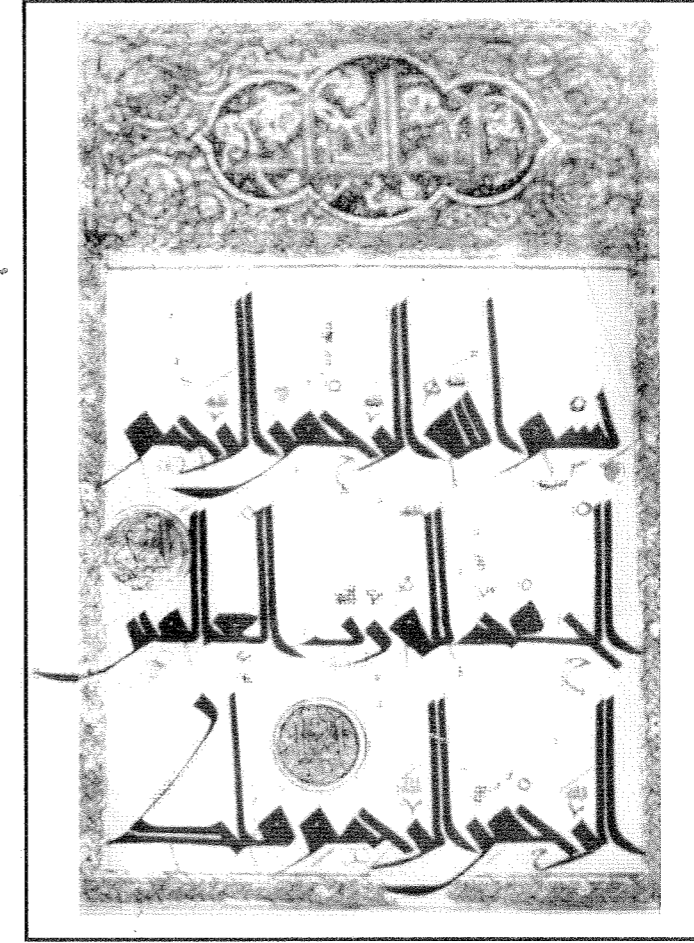 بسم الله الرحمن الرحيم
الحمد لله رب العلمين
الرحمن الرحيم ملك